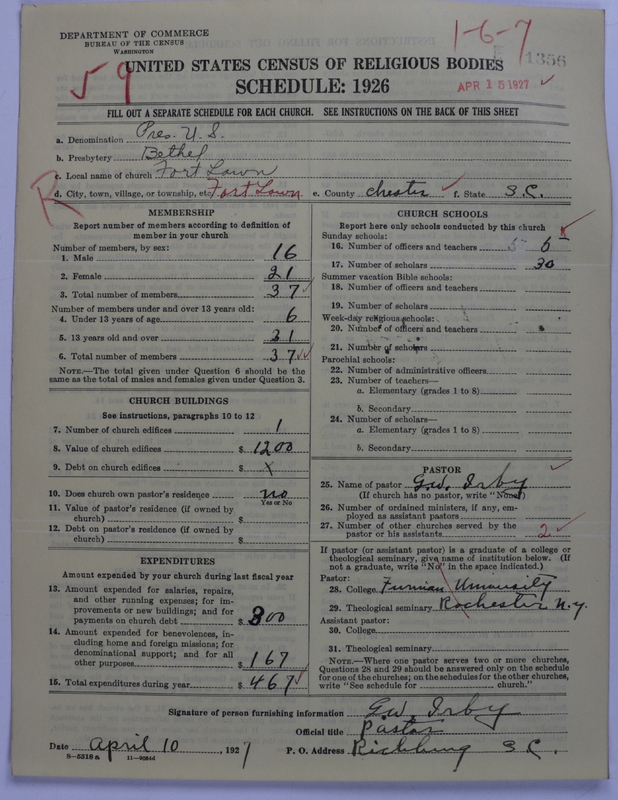 DEPARTMENT OF COMMERCE
BUREAU OF THE CENSUS
WASHINGTON
59
1-6-7
1356
UNITED STATES CENSUS OF RELIGIOUS BODIES
SCHEDULE: 1926
APR 15 1927
FILL OUT A SEPARATE SCHEDULE FOR EACH CHURCH. SEE INSTRUCTIONS ON THE BACK OF THIS SHEET
a. Denomination Pres. U. S.
b. Presbytery Bethel
c. Local name of church Fort Lawn
R d. City, town, village, or township, etc. Fort Lawn e. County Chester f. State S.C.
MEMBERSHIP
Report number of members according to definition of member in your church
Number of members, by sex:
1. Male 16
2. Female 21
3. Total number of members 37
Number of members under and over 13 years old:
4. Under 13 years of age 6
5. 13 years old and over 31
6. Total number of members 37
NOTE.—The total given under Question 6 should be the same as the total of males and females given under Question 3.
CHURCH BUILDINGS
See instructions, paragraphs 10 to 12
7. Number of church edifices 1
8. Value of church edifices $ 1200
9. Debt on church edifices $ x
10. Does church own pastor's residence no
Yes or No
11. Value of pastor's residence (if owned by church) $
12. Debt on pastor's residence (if owned by church) $
EXPENDITURES
Amount expended by your church during last fiscal year
13. Amount expended for salaries, repairs, and other running expenses; for improvements or new buildings; and for payments on church debt $ 300
14. Amount expended for benevolences, including home and foreign missions; for denominational support; and for all other purposes $ 167
15. Total expenditures during year $ 467
CHURCH SCHOOLS
Report here only schools conducted by this church
Sunday schools:
16. Number of officers and teachers 5
17. Number of scholars 30
Summer vacation Bible schools:
18. Number of officers and teachers
19. Number of scholars
Week-day religious schools:
20. Number of officers and teachers
21. Number of scholars
Parochial schools:
22. Number of administrative officers
23. Number of teachers—
a. Elementary (grades 1 to 8)
b. Secondary
24. Number of scholars—
a. Elementary (grades 1 to 8)
b. Secondary
PASTOR
25. Name of pastor G.W. Irby
(If church has no pastor, write "None")
26. Number of ordained ministers, if any, employed as assistant pastors
27. Number of other churches served by the pastor or his assistants 2
If pastor (or assistant pastor) is a graduate of a college or theological seminary, give name of institution below. (If not a graduate, write "No" in the space indicated.)
Pastor:
28. College Furman University
29. Theological seminary Rochester N.Y.
Assistant pastor:
30. College
31. Theological seminary
NOTE.—Where one pastor serves two or more churches, Questions 28 and 29 should be answered only on the schedule for one of the churches; on the schedules for the other churches, write "See schedule for church."
Signature of person furnishing information G.W. Irby
Official title Pastor
Date April 10, 1927 P. O. Address Richburg S.C.
8-5318a